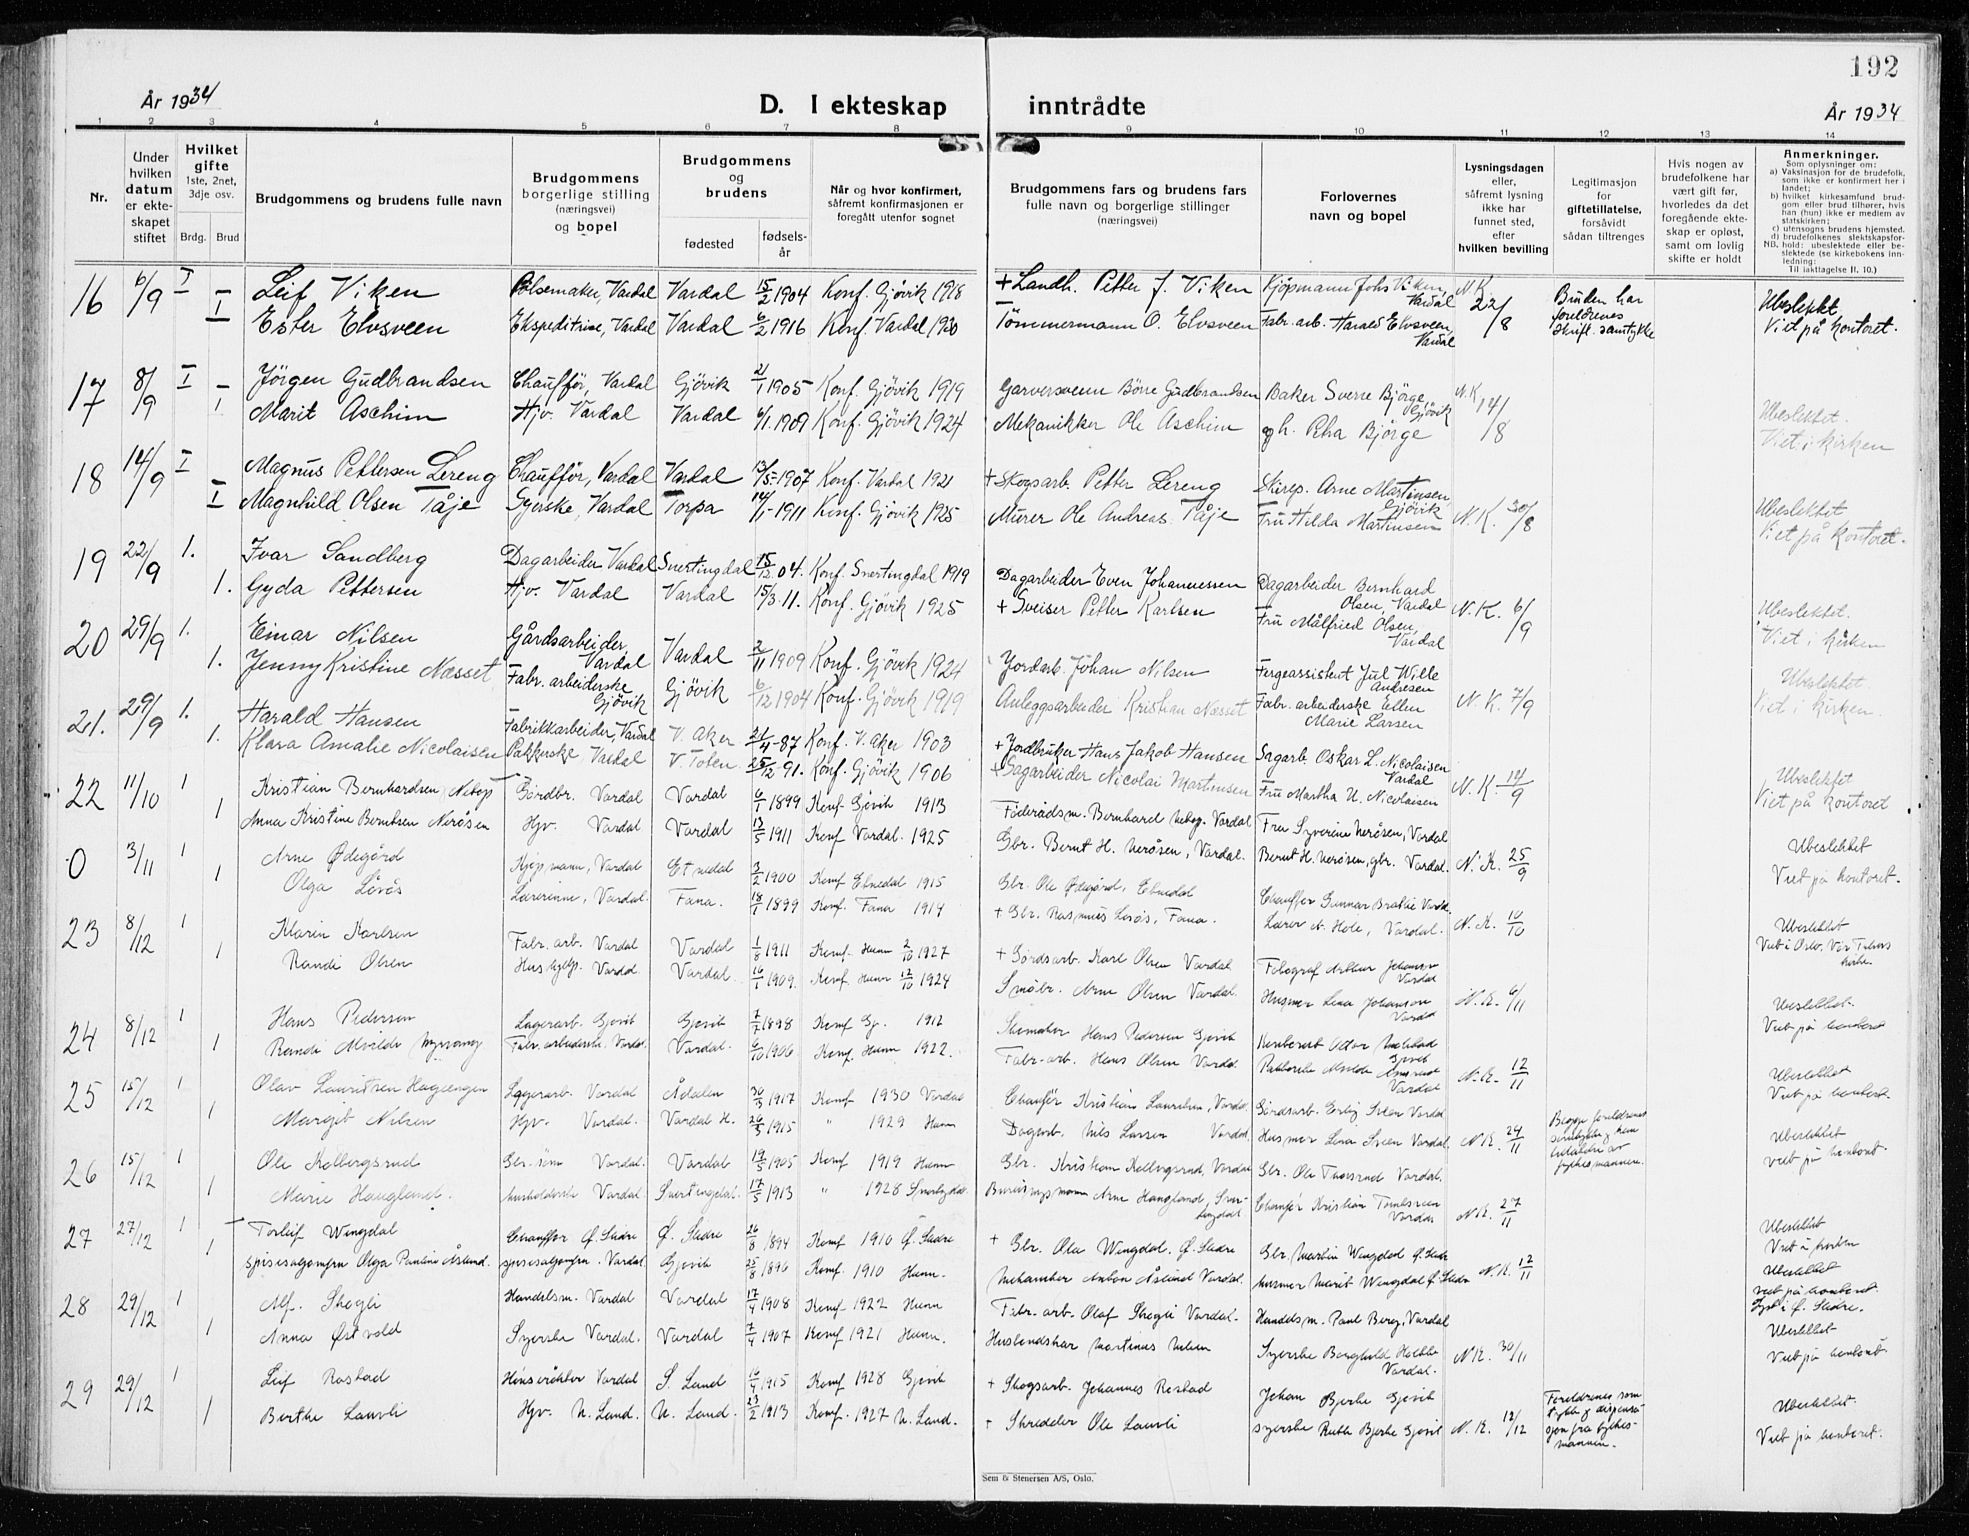 192
År 1934
D. I ekteskap inntrådte
År 1934
1 2 3 4 5 6 7 8 9 10 11 12 13 14
Nr.
Under hvilken datum er ekteskapet stiftet
Hvilket gifte
1ste, 2net, 3dje osv.
Brdg. Brud
Brudgommens og brudens fulle navn
Brudgommens borgerlige stilling (næringsvei) og bopel
Brudgommens og brudens
fødested
fødselsår
Når og hvor konfirmert, såfremt konfirmasjonen er foregått utenfor sognet
Brudgommens fars og brudens fars fulle navn og borgerlige stillinger (næringsvei)
Forlovernes navn og bopel
Lysningsdagen eller, såfremt lysning ikke har funnet sted, efter hvilken bevilling
Legitimasjon for giftetillatelse, forsåvidt sådan tiltrenges
Hvis nogen av brudefolkene har vært gift før, hvorledes da det foregående ekteskap er opløst, samt om lovlig skifte er holdt
Anmerkninger.
Som oplysninger om:
a) Vaksinasjon for de brudefolk, som ikke er konfirmert her i landet;
b) hvilket kirkesamfund brudgom eller brud tilhører, hvis han (hun) ikke er medlem av statskirken;
c) utensogns brudens hjemsted.
d) brudefolkenes slektskapsforhold: ubeslektede eller beslektede (se kirkebokens innledning:
NB. Til iakttagelse II. 10.)
16 6/9 I Leif Viken Pølsemaker, Vardal Vardal 15/2 1904 Konf. Gjövik 1918 + Landh. Petter J. Viken Kjöpmann Johs Viken, Vardal N.K. 22/8 Bruden har foreldrenes skrift. samtykke Ubeslektet
I Ester Elvsveen Ekspeditrise, Vardal Vardal 6/2 1916 Konf. Vardal 1930 Tömmermann O. Elvsveen Fabr. arb. Harald Elvsveen, Vardal Viet på kontoret.
17 8/9 I Jörgen Gudbrandsen Chaufför, Vardal Gjövik 21/1 1905 Konf. Gjövik 1919 Garversvenn Börre Gudbrandsen Baker Sverre Bjørge, Gjövik N.K. 14/8 Ubeslektet.
I Marit Aschim Hjv. Vardal Vardal 6/1. 1909 Konf. Gjövik 1924 Mekanikker Ole Aschim Bjørge Viet i kirken
18 14/9 I Magnus Pettersen Lereng Chaufför, Vardal Vardal 13/5-1907 Konf. Vardal 1921 + Skogsarb. Petter Lereng Arne Martinsen, Gjövik Ubeslektet
I Magnhild Olsen Tåje Syerske, Vardal Torpa 14/1-1911 Konf. Gjövik 1925 Murer Ole Andreas Tåje Fru Hilda Martinsen N.K. 30/8 Viet på kontoret.
19 22/9 1. Ivar Sandberg Dagarbeider Vardal Snertingdal 15/12 04. Konf. Snertingdal 1919 Dagarbeider Even Johannessen Dagarbeider Bernhard Olsen, Vardal Ubeslektet.
1. Gyda Pettersen Hjv. Vardal Vardal 15/3. 11. Konf. Gjövik 1925 + Sveiser Petter Karlsen Fru Målfried Olsen, Vardal N.K. 6/9 Viet i kirken
20 29/9 1. Einar Nilsen Gårdsarbeider, Vardal Vardal 2/11 1909 Konf. Gjövik 1924 Jordarb. Johan Nilsen Fergeassistent Jul Wille Andresen Ubeslektet.
1. Jenny Kristine Næsset Fabr. arbeiderske Gjövik Gjövik 6/12 1904 Konf. Gjövik 1919 Anleggsarbeider Kristian Næsset Fabr. arbeiderske Ellen Marie Larsen N.K. 7/9 Viet i kirken.
21. 29/9 1. Harald Hansen Fabrikkarbeider, Vardal V. Aker 21/4-87 Konf. V. Aker 1903 + Jordbruker Hans Jakob Hansen Sagarb. Oskar L. Nicolaisen Vardal Ubeslektet
1. Klara Amalie Nicolaisen Pakkerske Vardal V. Toten 25/12 91. Konf. Gjövik 1906 + Sagarbeider Nicolai Martinsen Fru Martha N. Nicolaisen N.K. 14/9 Viet på kontoret
22 11/10 1 Kristian Bernhardsen Vardal Vardal 6/1 1899 Konf. Gjövik 1913 Föderådsm. Bernhard Vardal Fru Syverine Nerösen, Vardal Ubeslektet
1 Anna Kristine Berntsen Nerösen Hjv. Vardal Vardal 13/5 1911 Konf Vardal. 1925 Gbr. Bernt H. Nerösen, Vardal. Bernt H. Nerösen, gbr. Vardal. N.K. 25/9 Viet på kontoret.
0 3/11 1 Arne Ødegård Kjöpmann, Vardal Etnedal 3/2 1900 Konf Etnedal 1915 Gbr. Ole Ødegård, Etnedal Chauffør Gunnar Vardal. Ubeslektet
1 Olga Lærerinne, Vardal. Fana. 18/1 1899 Konf. Fana 1914 + Gbr. Rasmus Fana. Lærer N. Hole, Vardal. N.K. 10/10 Viet i Oslo, kirke.
23 8/12 1 Karlsen Fabr. arb. Vardal Vardal 1/8 1911 Konf. Hunn 2/10 1927 + Gårdsarb. Karl Olsen Vardal Fotograf Arthur Johanson Vardal Ubeslektet.
1 Randi Olsen Vardal Vardal. 16/1 1909. Konf. Hunn 12/10 1924 Småbr. Arne Olsen Vardal. Husmor Lina Johanson Vardal N.K. 6/11 Viet på kontoret
24 8/12 1 Hans Pedersen Lagerarb. Gjövik Gjövik 7/7 1898 Konf Gj. 1912 Skomaker Hans Pedersen Gjövik Gjövik Ubeslektet
1 Randi Alvilde Fabr. arbeiderske. Vardal Vardal. 6/10 1906 Konf. Hunn 1922. Fabr. arb. Hans Olsen Vardal. Vardal N.K. 12/11 Viet på kontoret.
25 15/12 1 Olav Lauritsen Haugengen Lagerarb. Vardal Ådalen 30/3 1917 Konf 1930 Vardal Chauför Kristian Lauritsen, Vardal. Gårdsarb. Erling Sveen Vardal Begge foreldrenes fylkesmannen. Ubeslektet
1 Margit Nilsen Hjv. Vardal. Vardal H. 26/3 1915 " 1929 Hunn Dagarb. Nils Larsen Vardal. Husmor Lina Sveen Vardal. N.K. 24/11 viet på kontoret.
26 15/12 1 Ole Kolbergsrud Gbr. sönn Vardal. Vardal 19/5 1905 Konf 1919 Hunn Gbr. Kristian Kolbergsrud, Vardal Gbr. Ole Vardal.
1 Marie Haugland. Vardal. Snertingdal. 17/5 1913 " 1928 Snertingdal Arne Haugland, Snertingdal Chauför Kristian Vardal N.K. 27/11 Ubeslektet
27 27/12 1 Torleif Wingdal Chauffør Ø. Slidre Ø. Slidre 26/8 1894 Konf 1910 Ø. Slidre + Gbr. Ola Wingdal, Ø. Slidre Gbr. Martin Wingdal Ø. Slidre Viet i kirken
1 Olga Pauline Åslund. Vardal. Gjövik 25/8 1896 Konf. 1910 Hunn. Anton Åslund Vardal. Husmor Marit Wingdal Ø. Slidre N.K. 12/11 Ubeslektet viet på kontoret. Lyst i Ø. Slidre.
28 29/12 1 Alf. Skogli Handelsm. Vardal Vardal 17/4 1908 Konf 1922 Hunn Fabr. arb. Olaf Skogli Vardal. Handelsm. Paul Berg, Vardal Ubeslektet
1 Anna Østvold Syerske Vardal. Vardal 7/4 1907 Konf 1921 Hunn. Martinus Nilsen Syerske Borghild Vardal. N.K. 30/11 Viet på kontoret.
29 29/12 1 Leif Rostad Hönserökter Vardal S. Land 16/4 1915 Konf 1928 Gjövik + Skogsarb. Johannes Rostad Johan Bjerke Gjövik Foreldrenes samtykke & dispensasjon fra fylkesmannen. Ubeslektet.
1 Berthe Lauvli Hjv. N. Land. N. Land. 23/2 1913 Konf. 1927 N. Land. + Skredder Ole Lauvli syerske Ruth Bjerke Gjövik N.K. 12/12 Viet på kontoret.
Sem & Stenersen A/S, Oslo.